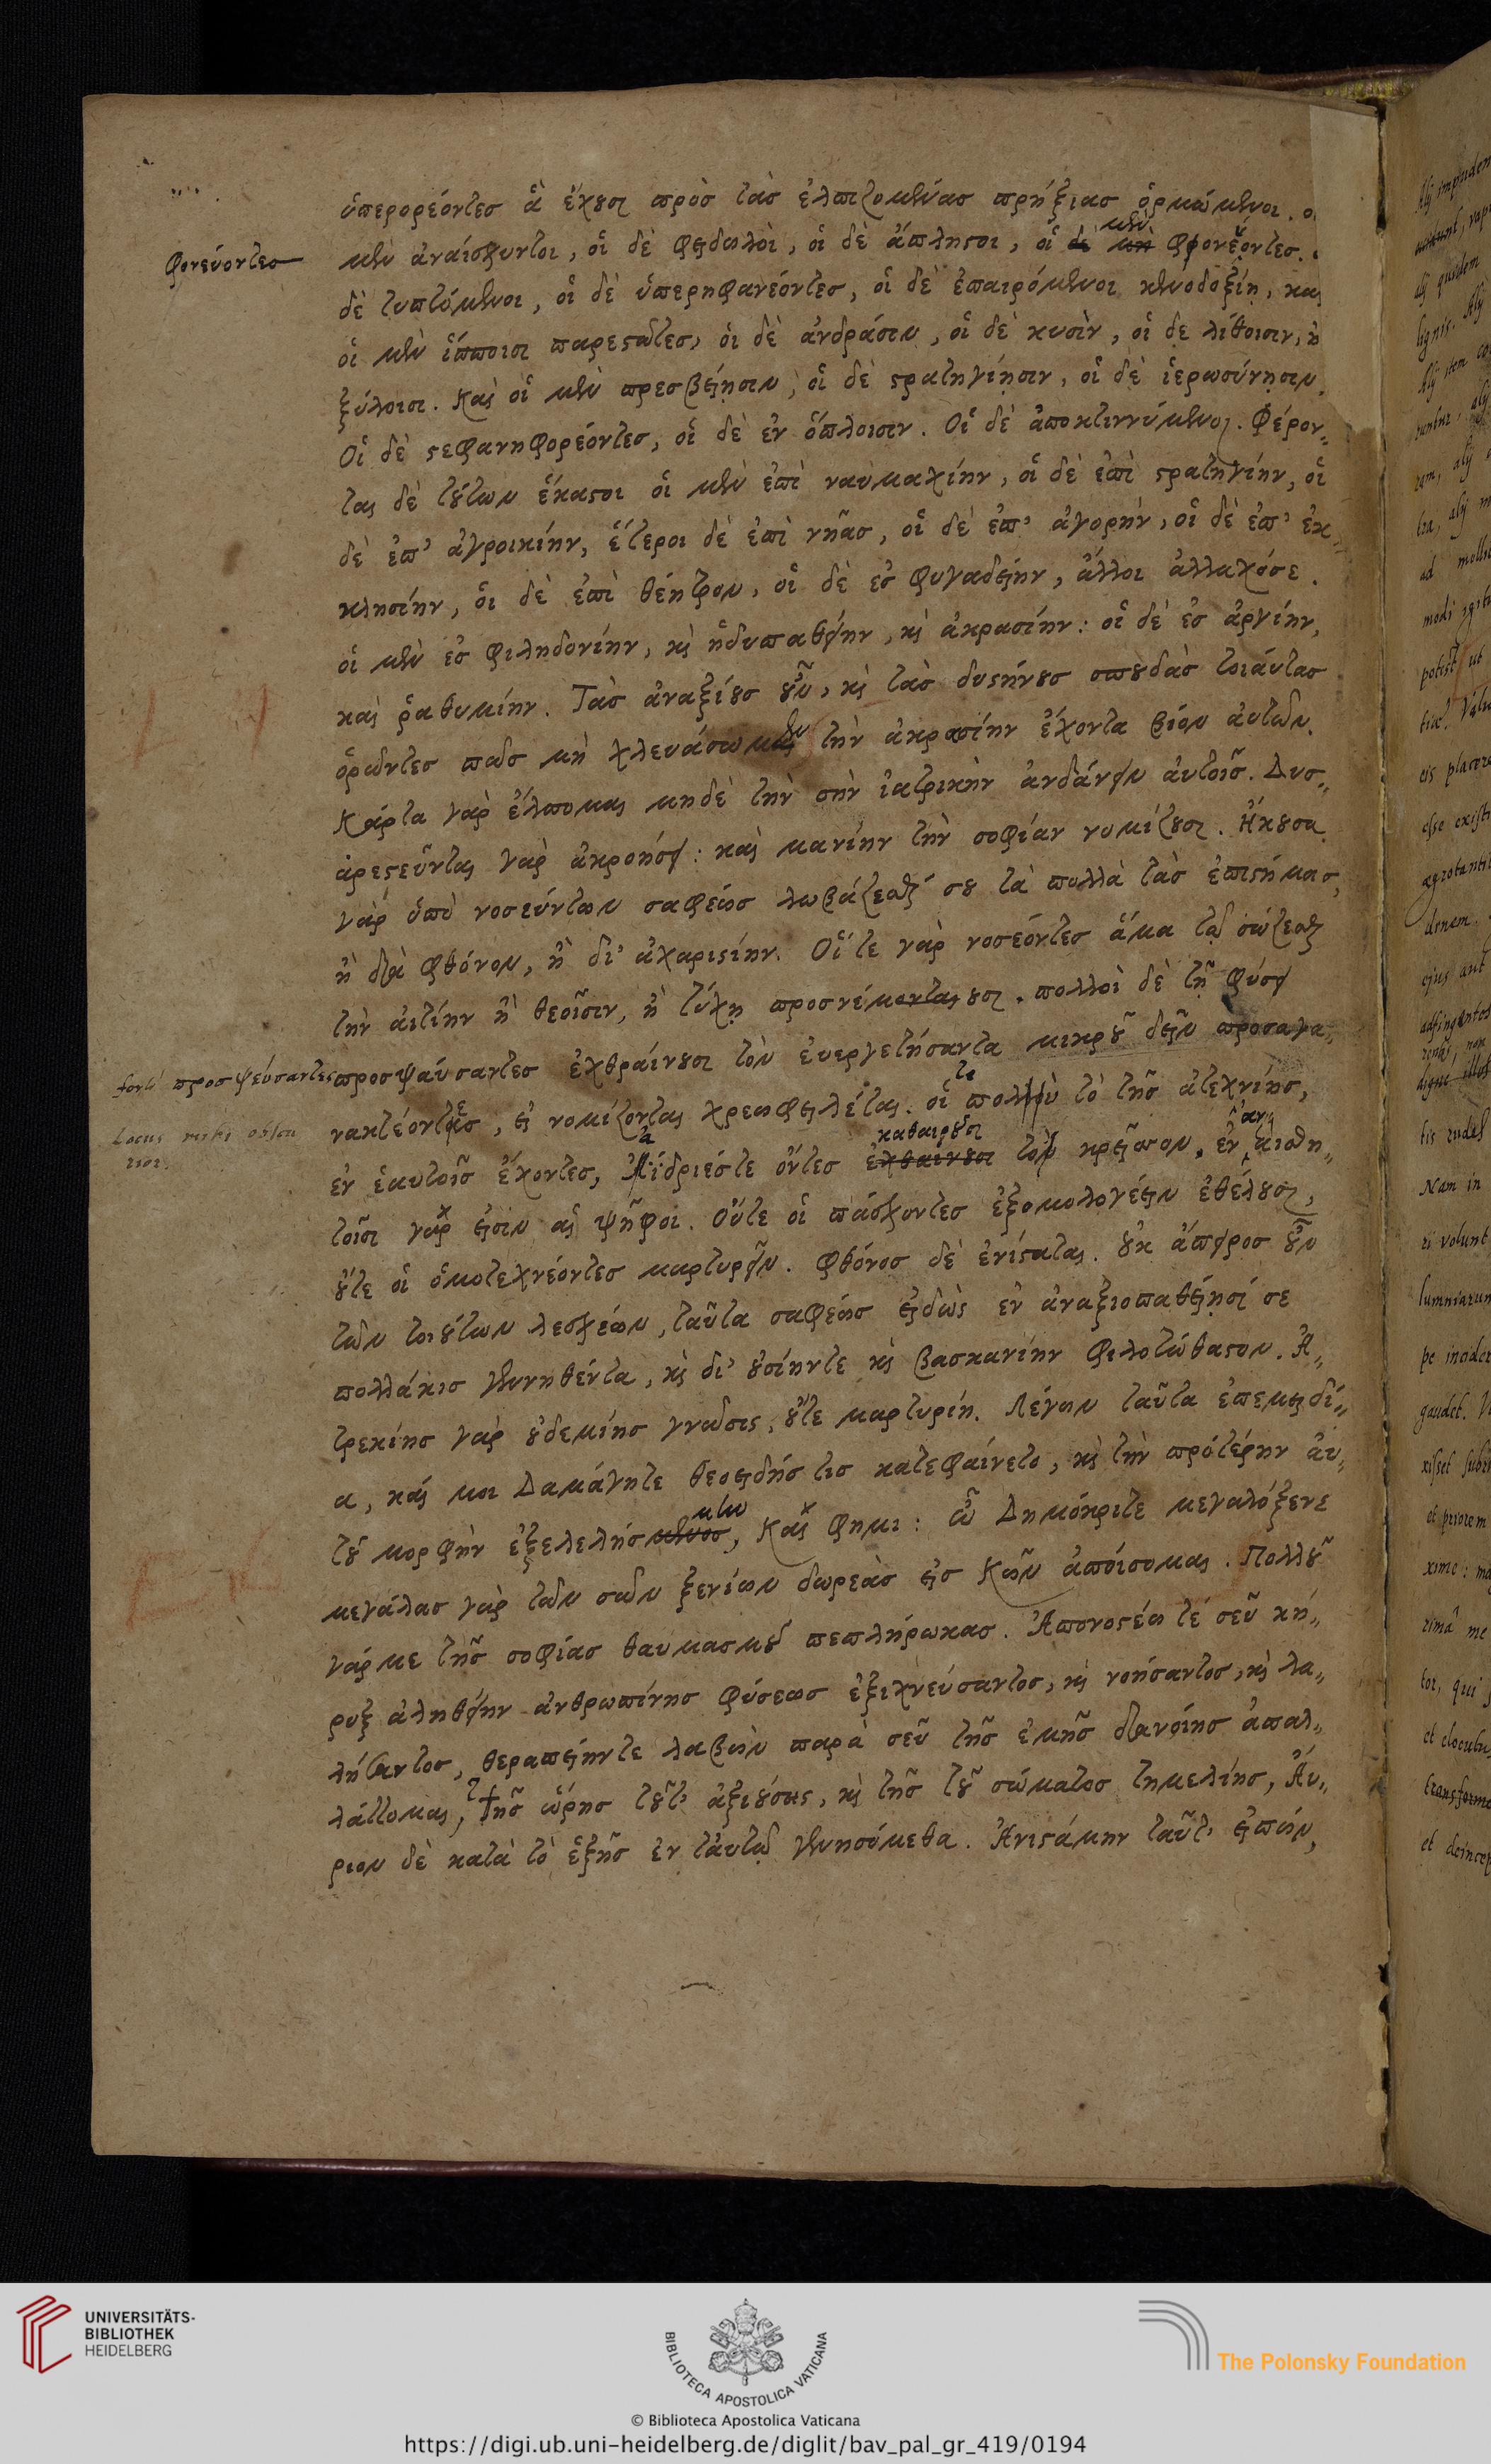 ὑπερορέοντες ἃ ἔχουσι πρὸς τὰς ἐλπιζομένας πρήξιας ὁρμώμενοι. οἱ
φονεύοντες
μὲν ἀναίσχυντοι, οἱ δὲ φειδωλοὶ, οἱ δὲ ἄπληστοι, οἱ δὲ μὴ μὲν φρονέοντες.
δὲ τυπτόμενοι, οἱ δὲ ὑπερηφανέοντες, οἱ δὲ ἐπαιρόμενοι κενοδοξίῃ, καὶ
οἱ μὲν ἵπποισι παρεστῶτες, οἱ δὲ ἀνδράσιν, οἱ δὲ κυσὶν, οἱ δε λίθοισιν, ἢ
ξύλοισι. Καὶ οἱ μὲν πρεσβείῃσιν, οἱ δὲ στρατηγίῃσιν, οἱ δὲ ἱερωσύνῃσιν.
Οἱ δὲ στεφανηφορέοντες, οἱ δὲ ἐν ὅπλοισιν. Οἱ δὲ ἀποκτιννύμενοι. Φέρον„
ται δὲ τούτων ἕκαστοι οἱ μὲν ἐπὶ ναυμαχίην, οἱ δὲ ἐπὶ στρατηγίην, οἱ
δὲ ἐπ' ἀγροικίην, ἕτεροι δὲ ἐπὶ νῆας, οἱ δὲ ἐπ' ἀγορήν, οἱ δὲ ἐπ' ἐκ„
κλησίην, οἱ δὲ ἐπὶ θέητρον, οἱ δὲ ἐς φυγαδείην, ἄλλοι ἀλλαχόσε.
οἱ μὲν ἐς φιληδονίην, καὶ ἡδυπαθείην, καὶ ἀκρασίην: οἱ δὲ ἐς ἀργίην,
καὶ ῥαθυμίην. Τὰς ἀναξίους οὖν, καὶ τὰς δυστήνους σπουδὰς τοιάυτας
ὁρῶντες πῶς μὴ χλευάσωμεν τὴν ἀκρασίην ἔχοντα βίον ἀυτῶν.
Κάρτα γὰρ ἔλπομαι μηδὲ τὴν σὴν ἰατρικὴν ἁνδάνειν ἀυτοῖς. Δυσ„
αρεστεῦνται γὰρ ἀκροήσει: καὶ μανίην τὴν σοφίαν νομίζουσι. Ἤκουσα
γὰρ ὑπὸ νοσεύντων σαφέως λωβάζεσθαί σου τὰ πολλὰ τὰς ἐπιστήμας,
ἢ διὰ φθόνον, ἢ δι' ἀχαριστίην. Οἵ τε γὰρ νοσέοντες ἅμα τῷ σώζεσθαι
τὴν ἀιτίην ἢ θεοῖσιν, ἢ τύχῃ προσνέμονται ουσι. πολλοὶ δὲ τῇ φύσει
fortè προσψεύσαντες προσψαύσαντες ἐχθραίνουσι τὸν ἐυεργετήσαντα μικροῦ δεῖν προσαγα„
Locus mihi obscu
rior.
νακτέοντες, εἰ νομίζονται χρεωφειλέται. οἵ τε πολλοὶ τὸ τῆς ἀτεχνίης,
ἐν ἑαυτοῖς ἔχοντες, Ἀΐδριές τε ὄντες ἐχθαίνουσι καθαιροῦσι τὸ κρεῖσσον. ἐν ἀναισθή„
τοισι γάρ εἰσιν αἱ ψῆφοι. Οὔτε οἱ πάσχοντες ἐξομολογέειν ἐθέλουσι,
οὔτε οἱ ὁμοτεχνέοντες μαρτυρεῖν. φθόνος δὲ ἐνίσταται. οὐκ ἄπειρος οὖν
τῶν τοιούτων λεσχέων, ταῦτα σαφέως εἰδὼς ἐν ἀναξιοπαθείῃσί σε
πολλάκις γενηθέντα, καὶ δι' οὐσίην τε καὶ βασκανίην φιλοτώθαστον. Ἀ„
τρεκίης γὰρ οὐδεμίης γνῶσις, οὔτε μαρτυρίη. Λέγων ταῦτα ἐπεμειδί„
α, καὶ μοι Δαμάγητε θεοειδής τις κατεφαίνετο, καὶ τὴν προτέρην ἀυ„
τοῦ μορφὴν ἐξελελήσμενος μην, Καὶ φημι: ὦ Δημόκριτε μεγαλόξενε
μεγάλας γὰρ τῶν σῶν ξενίων δωρεὰς εἰς Κῶν ἀποίσομαι. Πολλοῦ
γάρ με τῆς σοφίας θαυμασμοῦ πεπλήρωκας. Ἀπονοστέω τέ σεῦ κή„
ρυξ ἀληθείην ἀνθρωπίνης φύσεως ἐξιχνεύσαντος, καὶ νοήσαντος, καὶ λα„
λήσαντος, θεραπείην τε λαβὼν παρὰ σεῦ τῆς ἐμῆς διανοίης ἀπαλ„
λάττομαι, τῆς ὥρης τοῦτ' ἀξιούσης, καὶ τῆς τοῦ σώματος τημελίης, Ἄυ„
ριον δὲ κατὰ τὸ ἑξῆς ἐν ταυτῷ γενησόμεθα. Ἀνιστάμην ταῦτ' εἰπών,
UNIVERSITÄTS-
BIBLIOTHEK
HEIDELBERG
BIBLIOTECA APOSTOLICA VATICANA
The Polonsky Foundation
© Biblioteca Apostolica Vaticana
https://digi.ub.uni-heidelberg.de/diglit/bav_pal_gr_419/0194